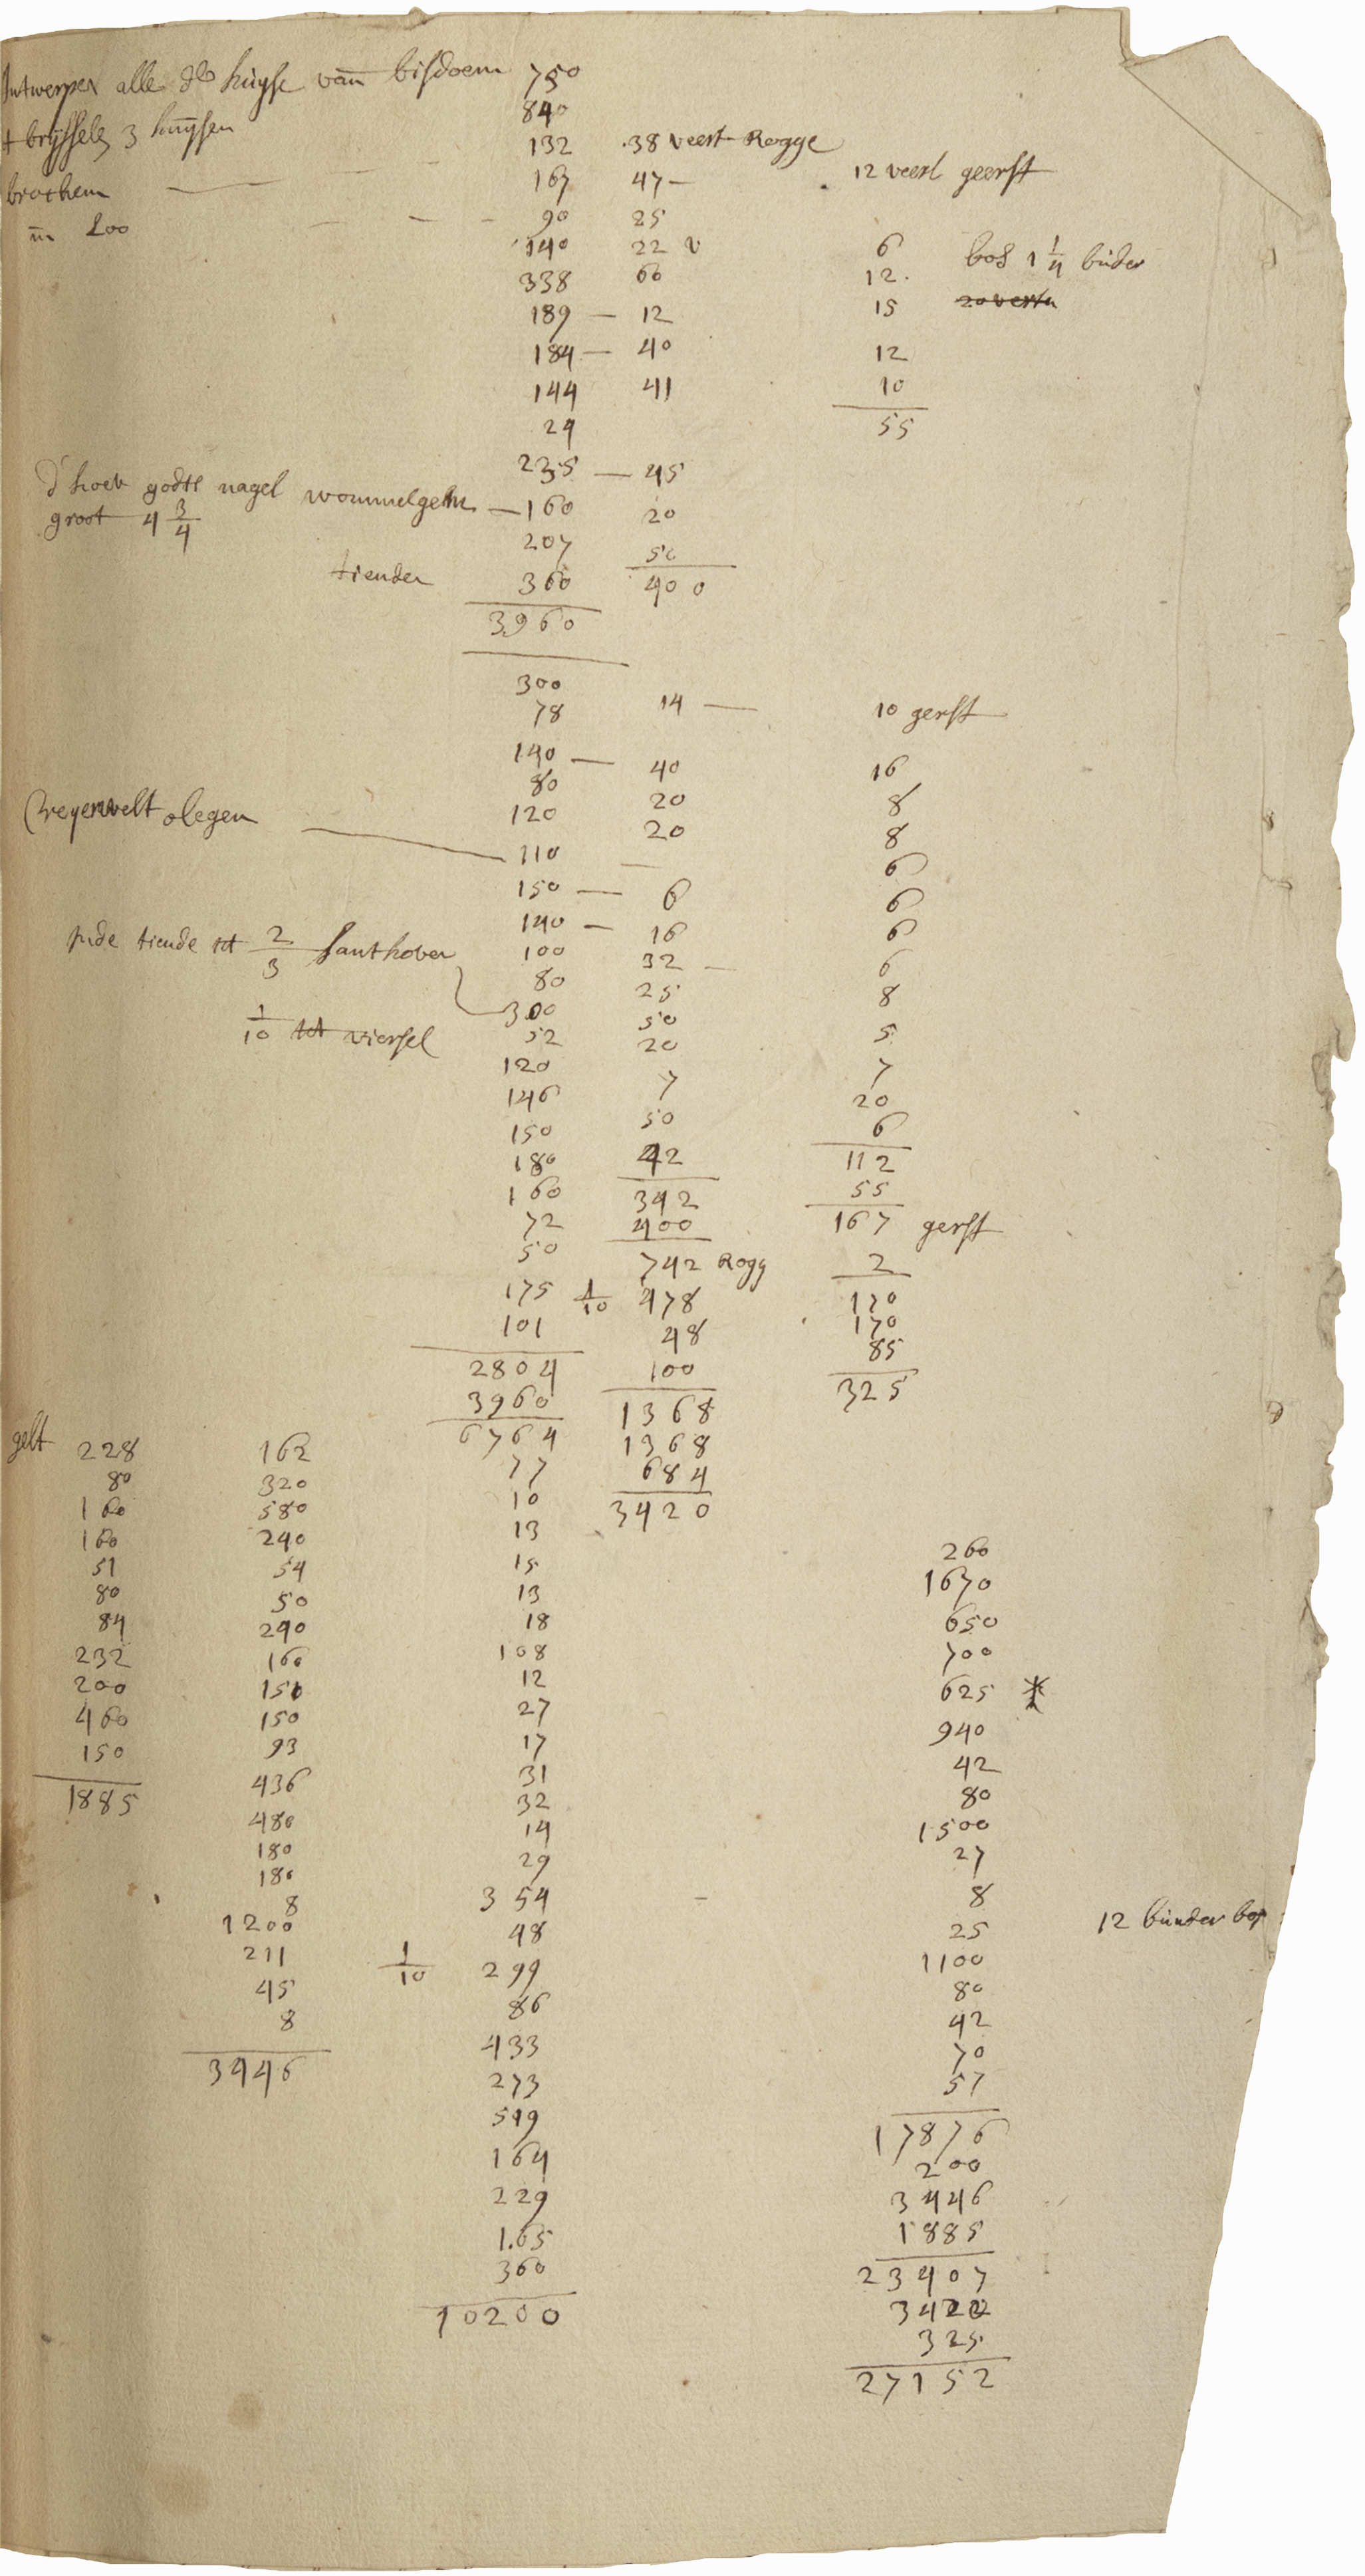 Antwerpen alle de huyse van bisdoem 750
840
t brussels 3 huysen 132 38 veert Rogge
167 47 — 12 veerl geerst
brochem — 90 25
in 200 — — — 140 22 v 6 bos 1 1/4 bunder
338 60 12.
189 — 12 15 20 verta
184 — 40 12
144 41 10
24 55
235 — 45
d'hoev godts nagel wommelgem — 160 20
groot 4 3/4 207 50
tienden 360 400
3960
300
78 14 — 10 gerst
140 — 40 16
80 20 8
120 20 8
Zevenvelt olegen — 110 — 6
150 — 6 6
140 — 16 6
tiende tot 2/3 santhoven 100 32 — 6
80 25 8
300 50 5
1/10 tot viersel 52 20 7
120 7 20
146 50 6
150 42 112
180 342 55
160 400 167 gerst
72 742 Rogg 2
50 1/10 478 170
175 48 170
101 100 85
2804 1368 325
3960 1368
6764 684
gelt 228 162 77 3420
80 320 10
160 580 13 260
160 240 15 1670
51 54 13 650
80 50 18 700
84 290 108 625 *
232 160 12 940
200 150 27 42
460 150 17 80
150 93 31 1500
1885 436 32 27
480 14 8
180 29 25 12 bunder bos
180 354 1100
8 48 80
1200 1/10 299 42
211 86 70
45 433 57
8 273 17876
3446 549 200
164 3446
229 1885
1.65 23407
360 3420
10200 325
27152